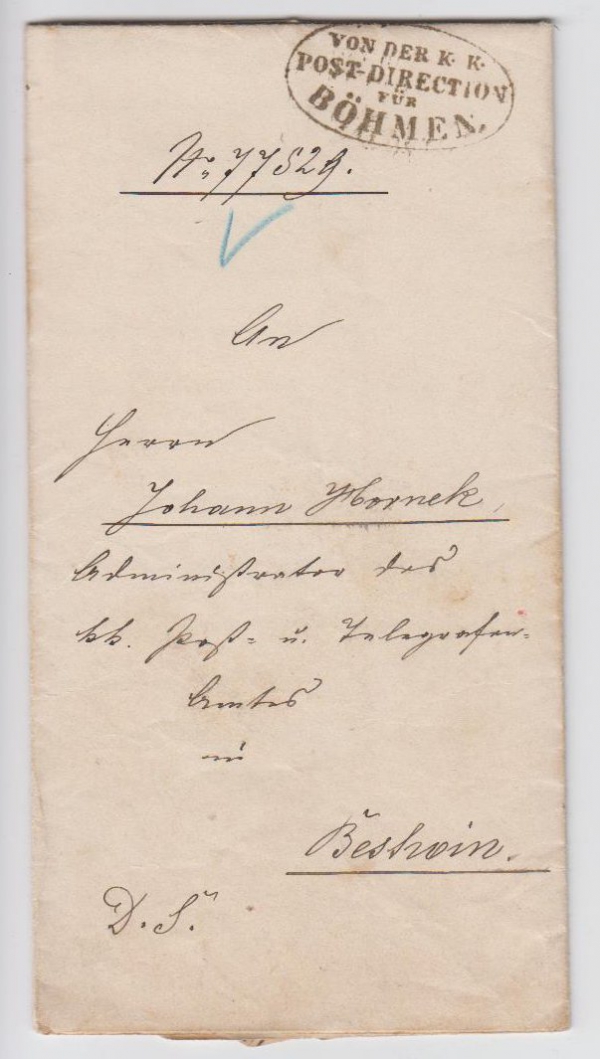 VON DER K. K.
POST-DIRECTION
FÜR
BÖHMEN.
No 77529.
An
Herrn
Johann Hornek,
Administrator des
kk. Post- u. Telegrafen-
Amtes
in
Běstwin.
D. S.